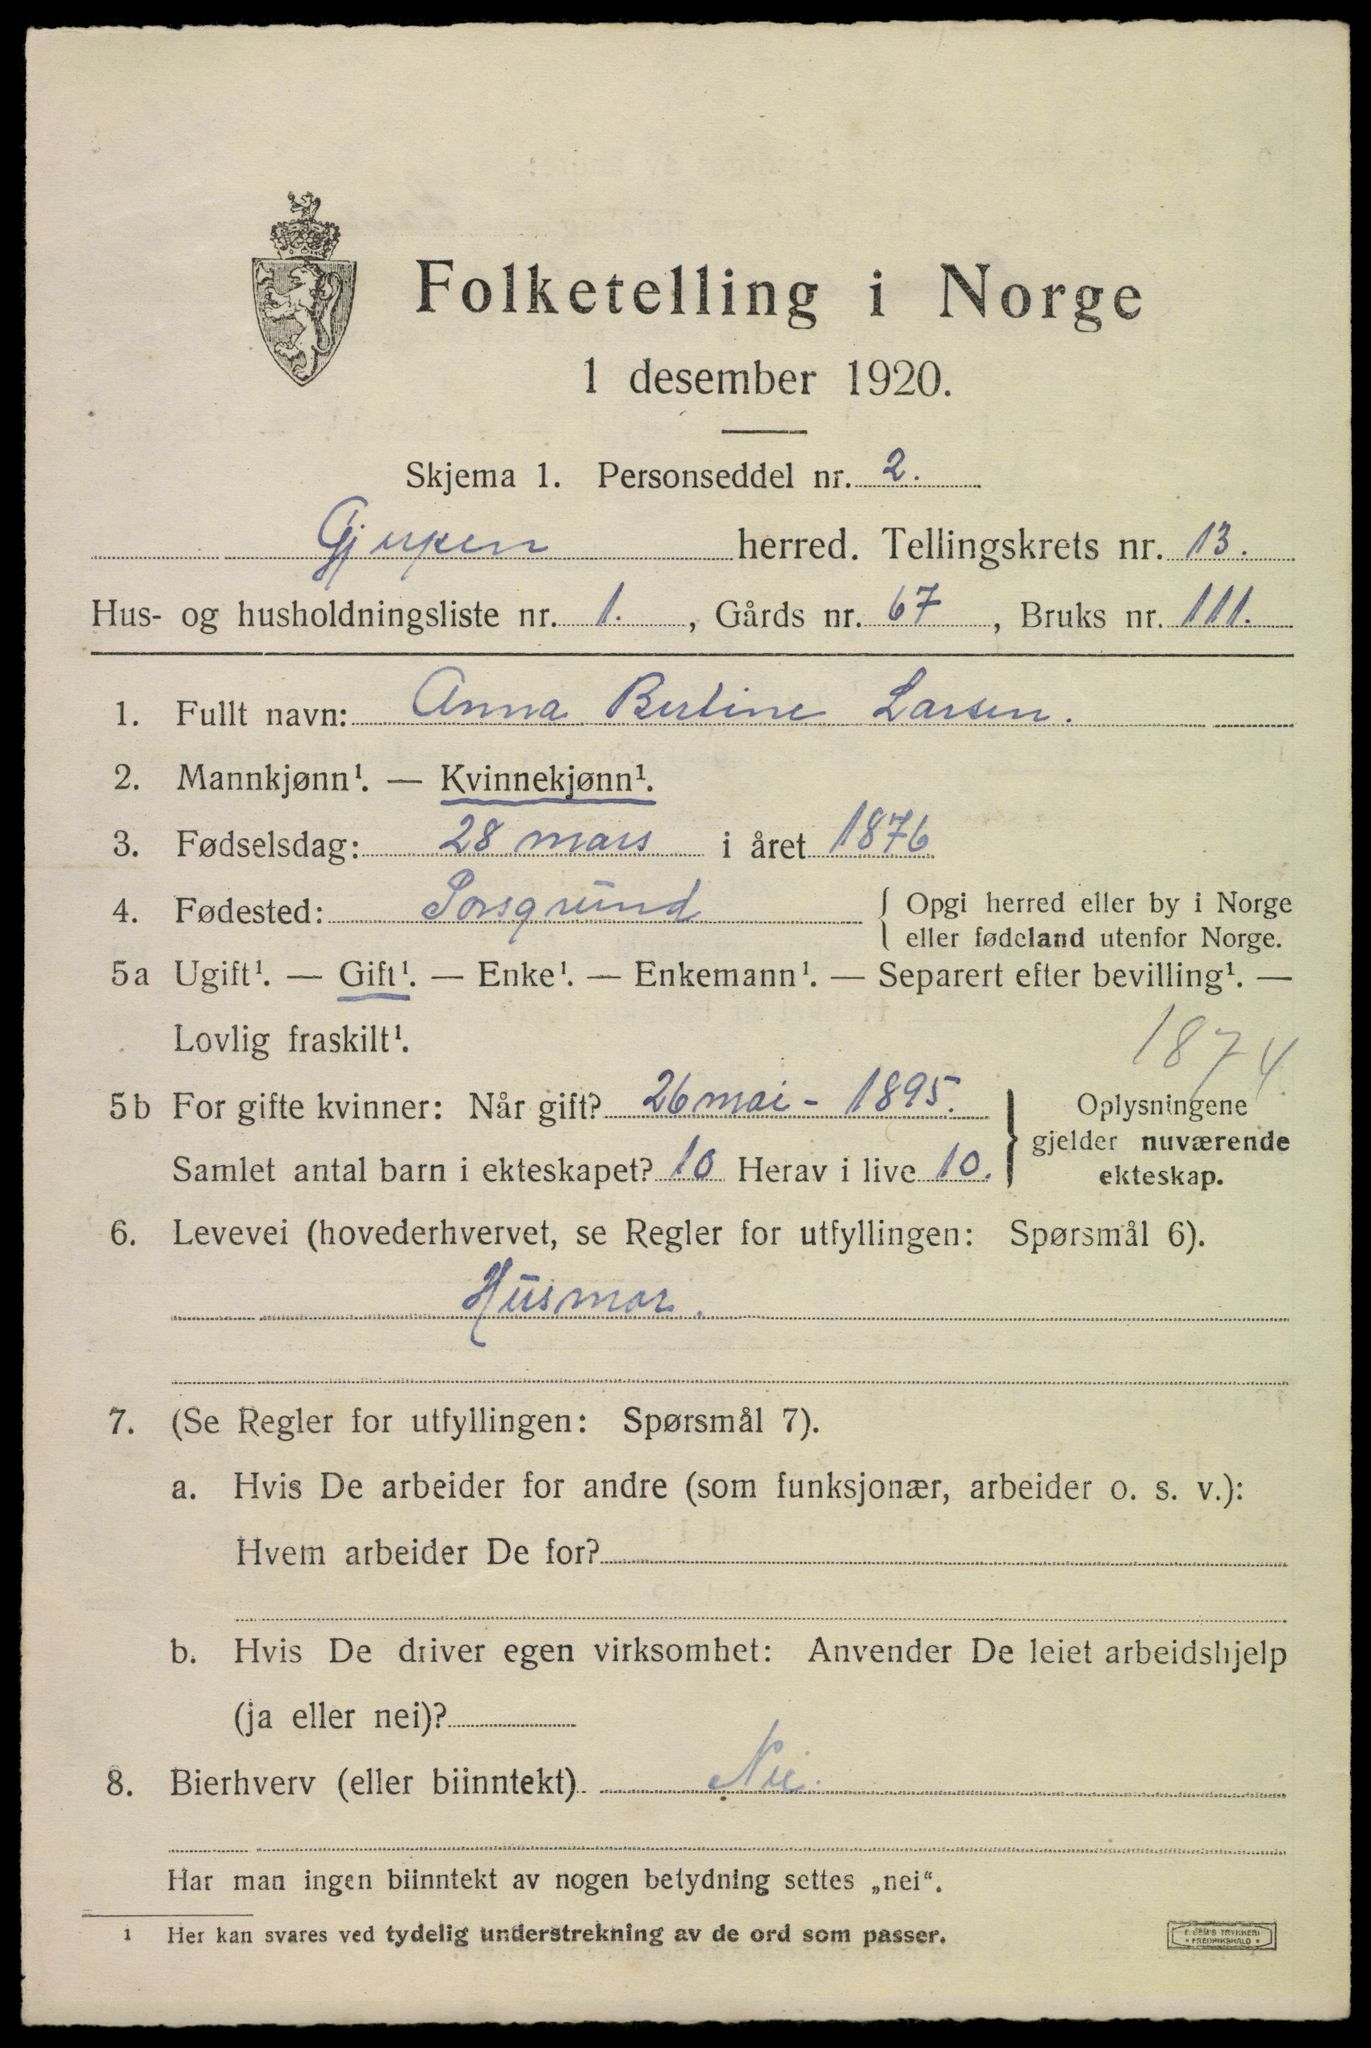 Folketelling i Norge
1 desember 1920.
Skjema 1. Personseddel nr. 2.
Gjerpen herred. Tellingskrets nr. 13.
Hus- og husholdningsliste nr. 1. , Gårds nr. 67 , Bruks nr. 111.
1. Fullt navn: Anna Bertine Larsen.
2. Mannkjønn¹. — Kvinnekjønn¹.
3. Fødselsdag: 28 mars i året 1876
4. Fødested: Porsgrund { Opgi herred eller by i Norge
eller fødeland utenfor Norge.
5a Ugift¹. — Gift¹. — Enke¹. — Enkemann¹. — Separert efter bevilling¹. —
Lovlig fraskilt¹.
1874
5b For gifte kvinner: Når gift? 26 mai - 1895. } Oplysningene
gjelder nuværende
Samlet antal barn i ekteskapet? 10 Herav i live 10. ekteskap.
6. Levevei (hovederhvervet, se Regler for utfyllingen: Spørsmål 6).
Husmor.
7. (Se Regler for utfyllingen: Spørsmål 7).
a. Hvis De arbeider for andre (som funksjonær, arbeider o. s. v.):
Hvem arbeider De for?
b. Hvis De driver egen virksomhet: Anvender De leiet arbeidshjelp
(ja eller nei)?
8. Bierhverv (eller biinntekt) Nei.
Har man ingen biinntekt av nogen betydning settes „nei“.
¹ Her kan svares ved tydelig understrekning av de ord som passer.
E. SEM'S TRYKKERI
• FREDRIKSHALD •